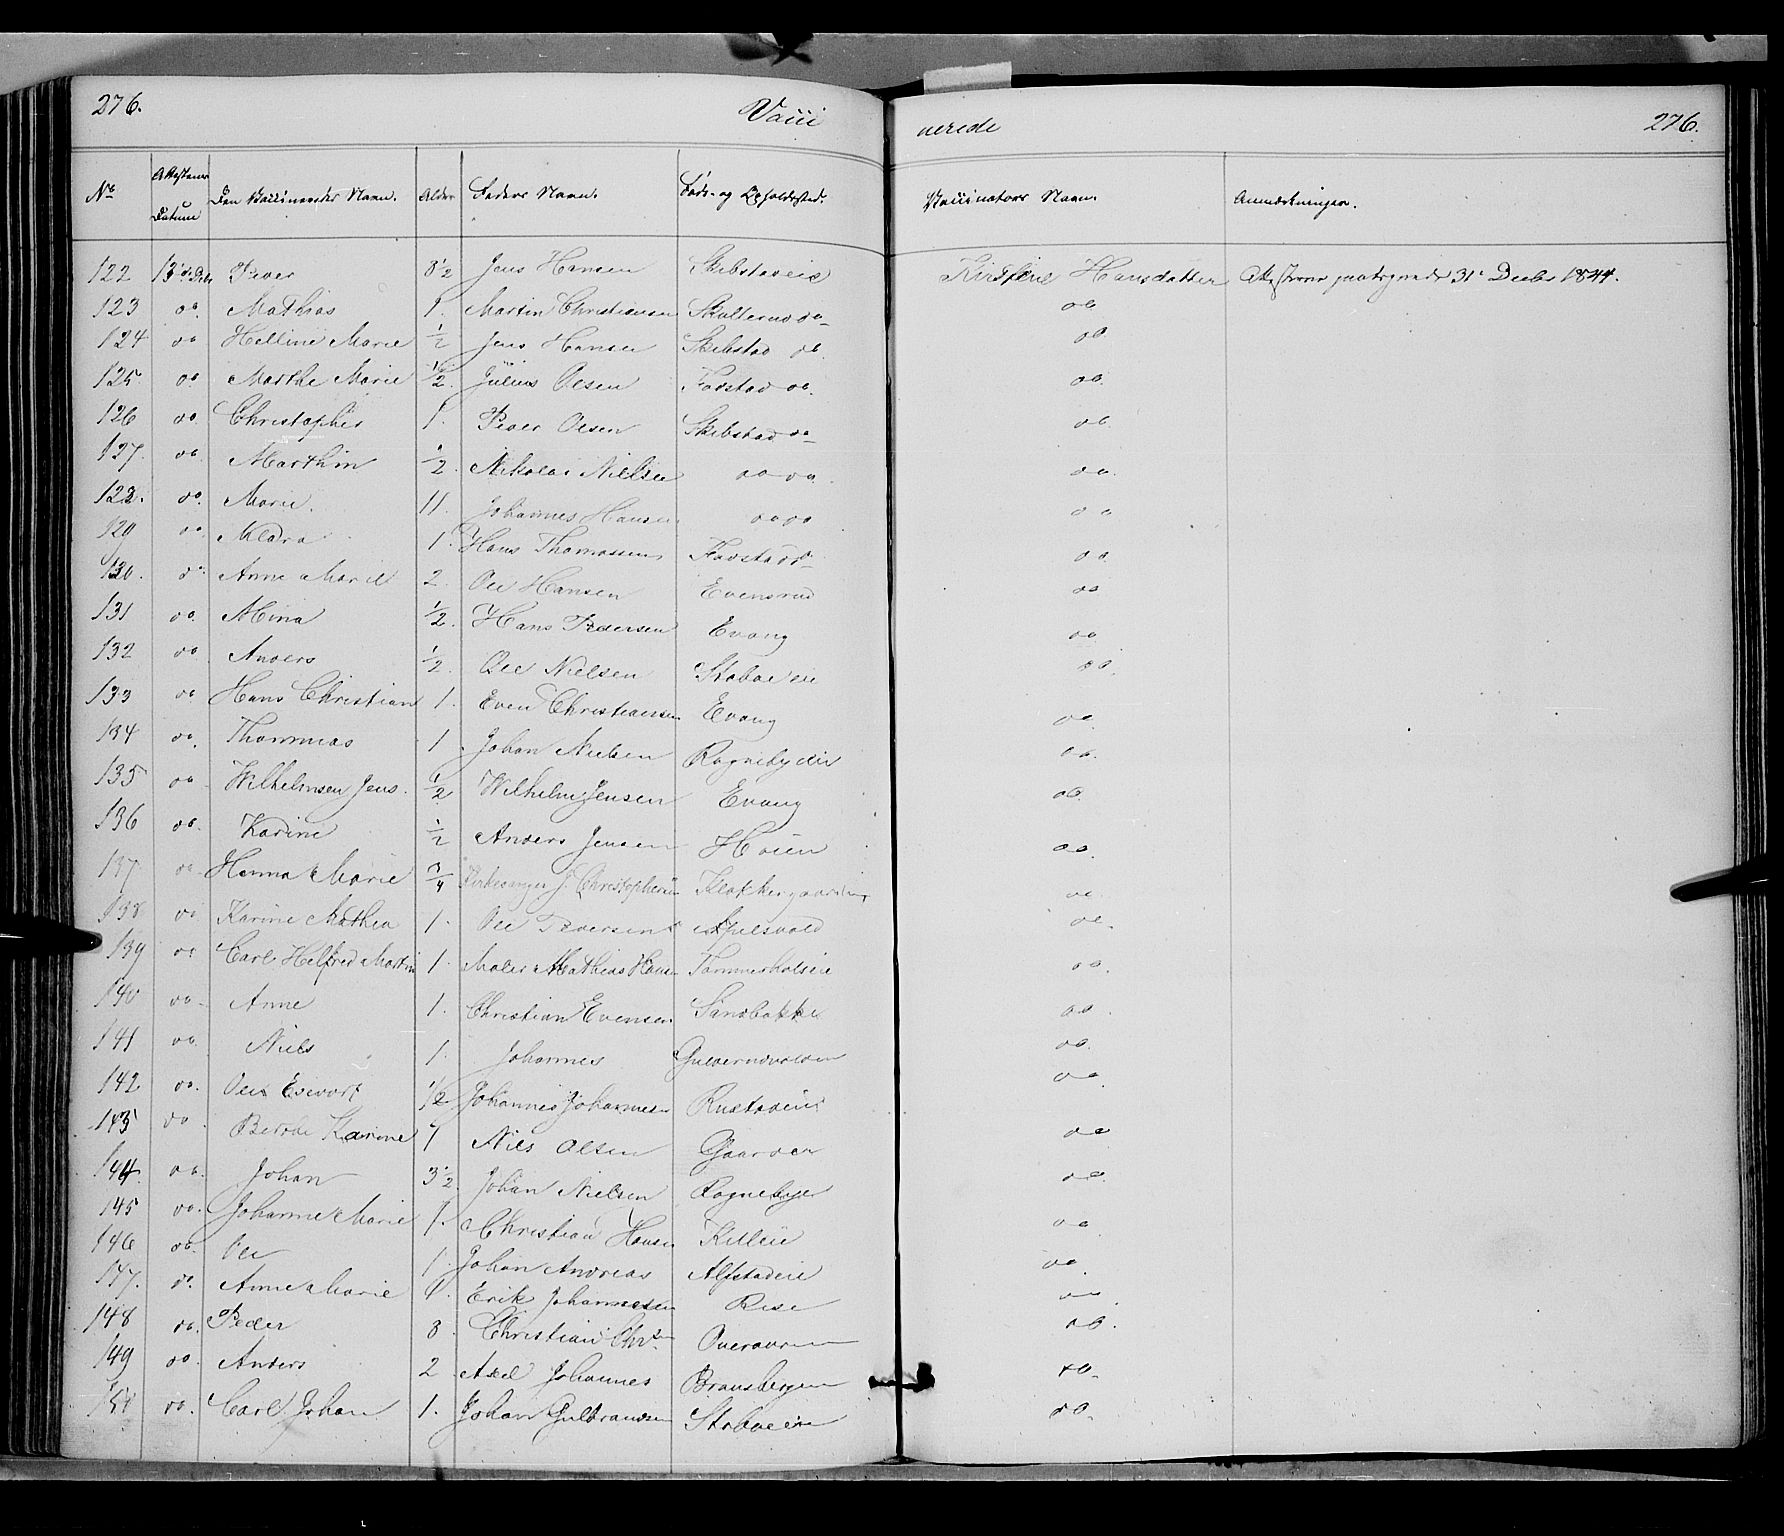 276. Vacci nerede 276.
No Attestens Datum Den Vaccineredes Navn. Alder Faders Navn. Føde- og Opholdssted. Vaccinators Navn. Anmærkninger.
122 13de Peder 8½ Jens Hansen Skibstadeie Kirstine Hansdatter Attesten 31 Decbr 1844.
123 do. Mathias 1. Martin Christiansen do.
124 do Helline Marie ½ Jens Hansen Skibstad do. do.
125 do Marthe Marie ½. Julius Olsen Fodstad do. do.
126 do. Christopher 1. Peder Olsen Skibstad do do.
127. do. Marthin ½. Nikolai Nielsen do do. do.
128. do. Marie. 11. Johannes Hansen do do do
129 do 1. Hans Thomassen do
130. do Anne Marie 2. Ole Hansen Evensrud do
131 do. Mina ½. Hans Pedersen Evang do
132 do. Anders ½. Ole Nielsen Stabo eie do.
133 do Hans Christian 1. Even Christiansen Evang do.
134 do. Thommas 1. Johan Nielsen Rognebyeie do.
135 do Wilhelmsen Jens. ½ Wilhelm Jensen Evang do.
136 do. Karine ½ Anders Jensen Houen do.
137 do Hanna Marie ¾ Kirkesanger J. Christophersen Klokkergaarden do.
138 do Karine Mathea 1. Ole Pedersen Apelsvold do.
139 do Carl Helfred Martin 1. Maler Mathias Hansen Tømmerholseie do.
140 do. Anne 1. Christian Evensen Sandbakke do.
141 do. Niels 1. Johannes do.
142 do. Ole Edevart ½ Johannes Johannesen Rustadeie do.
143 do Berthe Karine 7 Niels Olsen Gaarder do
144. do. Johan 3½. Johan Nielsen Rognebye do.
145 do. Johanne Marie 1. Christian Hansen do
146 do. Ole 1. Johan Andreas Alfstadeie do.
147. do. Anne Marie 1. Erik Johannessen Rise do.
148 do. Peder 8. Christian Chrsen do.
149 do. Anders 2 Axel Johannes Bransbergen do.
do. Carl Johan 1. Johan Gulbrandsen Staboeie do.